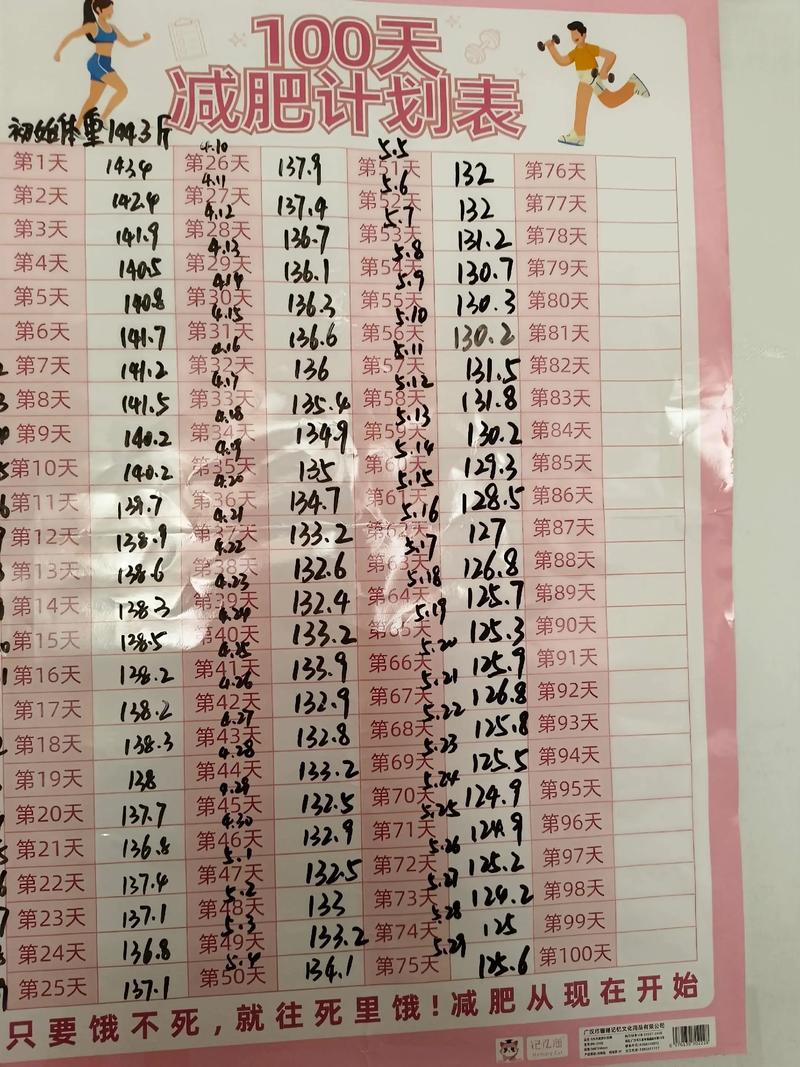 100天
减肥计划表
初始体重144.3斤
第1天 143.4 4.10 第26天 137.9 5.5 第51天 132 第76天
第2天 142.4 4.11 第27天 137.4 5.6 第52天 132 第77天
第3天 141.9 4.12 第28天 136.7 5.7 第53天 131.2 第78天
第4天 140.5 4.13 第29天 136.1 5.8 第54天 130.7 第79天
第5天 140.8 4.14 第30天 136.3 5.9 第55天 130.3 第80天
第6天 141.7 4.15 第31天 136.6 5.10 第56天 130.2 第81天
第7天 141.2 4.16 第32天 136 5.11 第57天 131.5 第82天
第8天 141.5 4.17 第33天 135.4 5.12 第58天 131.8 第83天
第9天 140.2 4.18 第34天 134.9 5.13 第59天 130.2 第84天
第10天 140.2 4.19 第35天 135 5.14 第60天 129.3 第85天
第11天 139.7 4.20 第36天 134.7 5.15 第61天 128.5 第86天
第12天 138.9 4.21 第37天 133.2 5.16 第62天 127 第87天
第13天 138.6 4.22 第38天 132.6 5.17 第63天 126.8 第88天
第14天 138.3 4.23 第39天 132.4 5.18 第64天 125.7 第89天
第15天 138.5 4.24 第40天 133.2 5.19 第65天 125.3 第90天
第16天 138.2 4.25 第41天 133.9 5.20 第66天 125.9 第91天
第17天 138.2 4.26 第42天 132.9 5.21 第67天 126.8 第92天
第18天 138.3 4.27 第43天 132.8 5.22 第68天 125.8 第93天
第19天 138 4.28 第44天 133.2 5.23 第69天 125.5 第94天
第20天 137.7 4.29 第45天 132.5 5.24 第70天 124.9 第95天
第21天 136.8 4.30 第46天 132.9 5.25 第71天 124.9 第96天
第22天 137.4 5.1 第47天 132.5 5.26 第72天 125.2 第97天
第23天 137.1 5.2 第48天 133 5.27 第73天 124.2 第98天
第24天 136.8 5.3 第49天 133.2 5.28 第74天 125 第99天
第25天 137.1 5.4 第50天 134.1 5.29 第75天 125.6 第100天
只要饿不死,就往死里饿!减肥从现在开始
记忆猫
Memory Cat